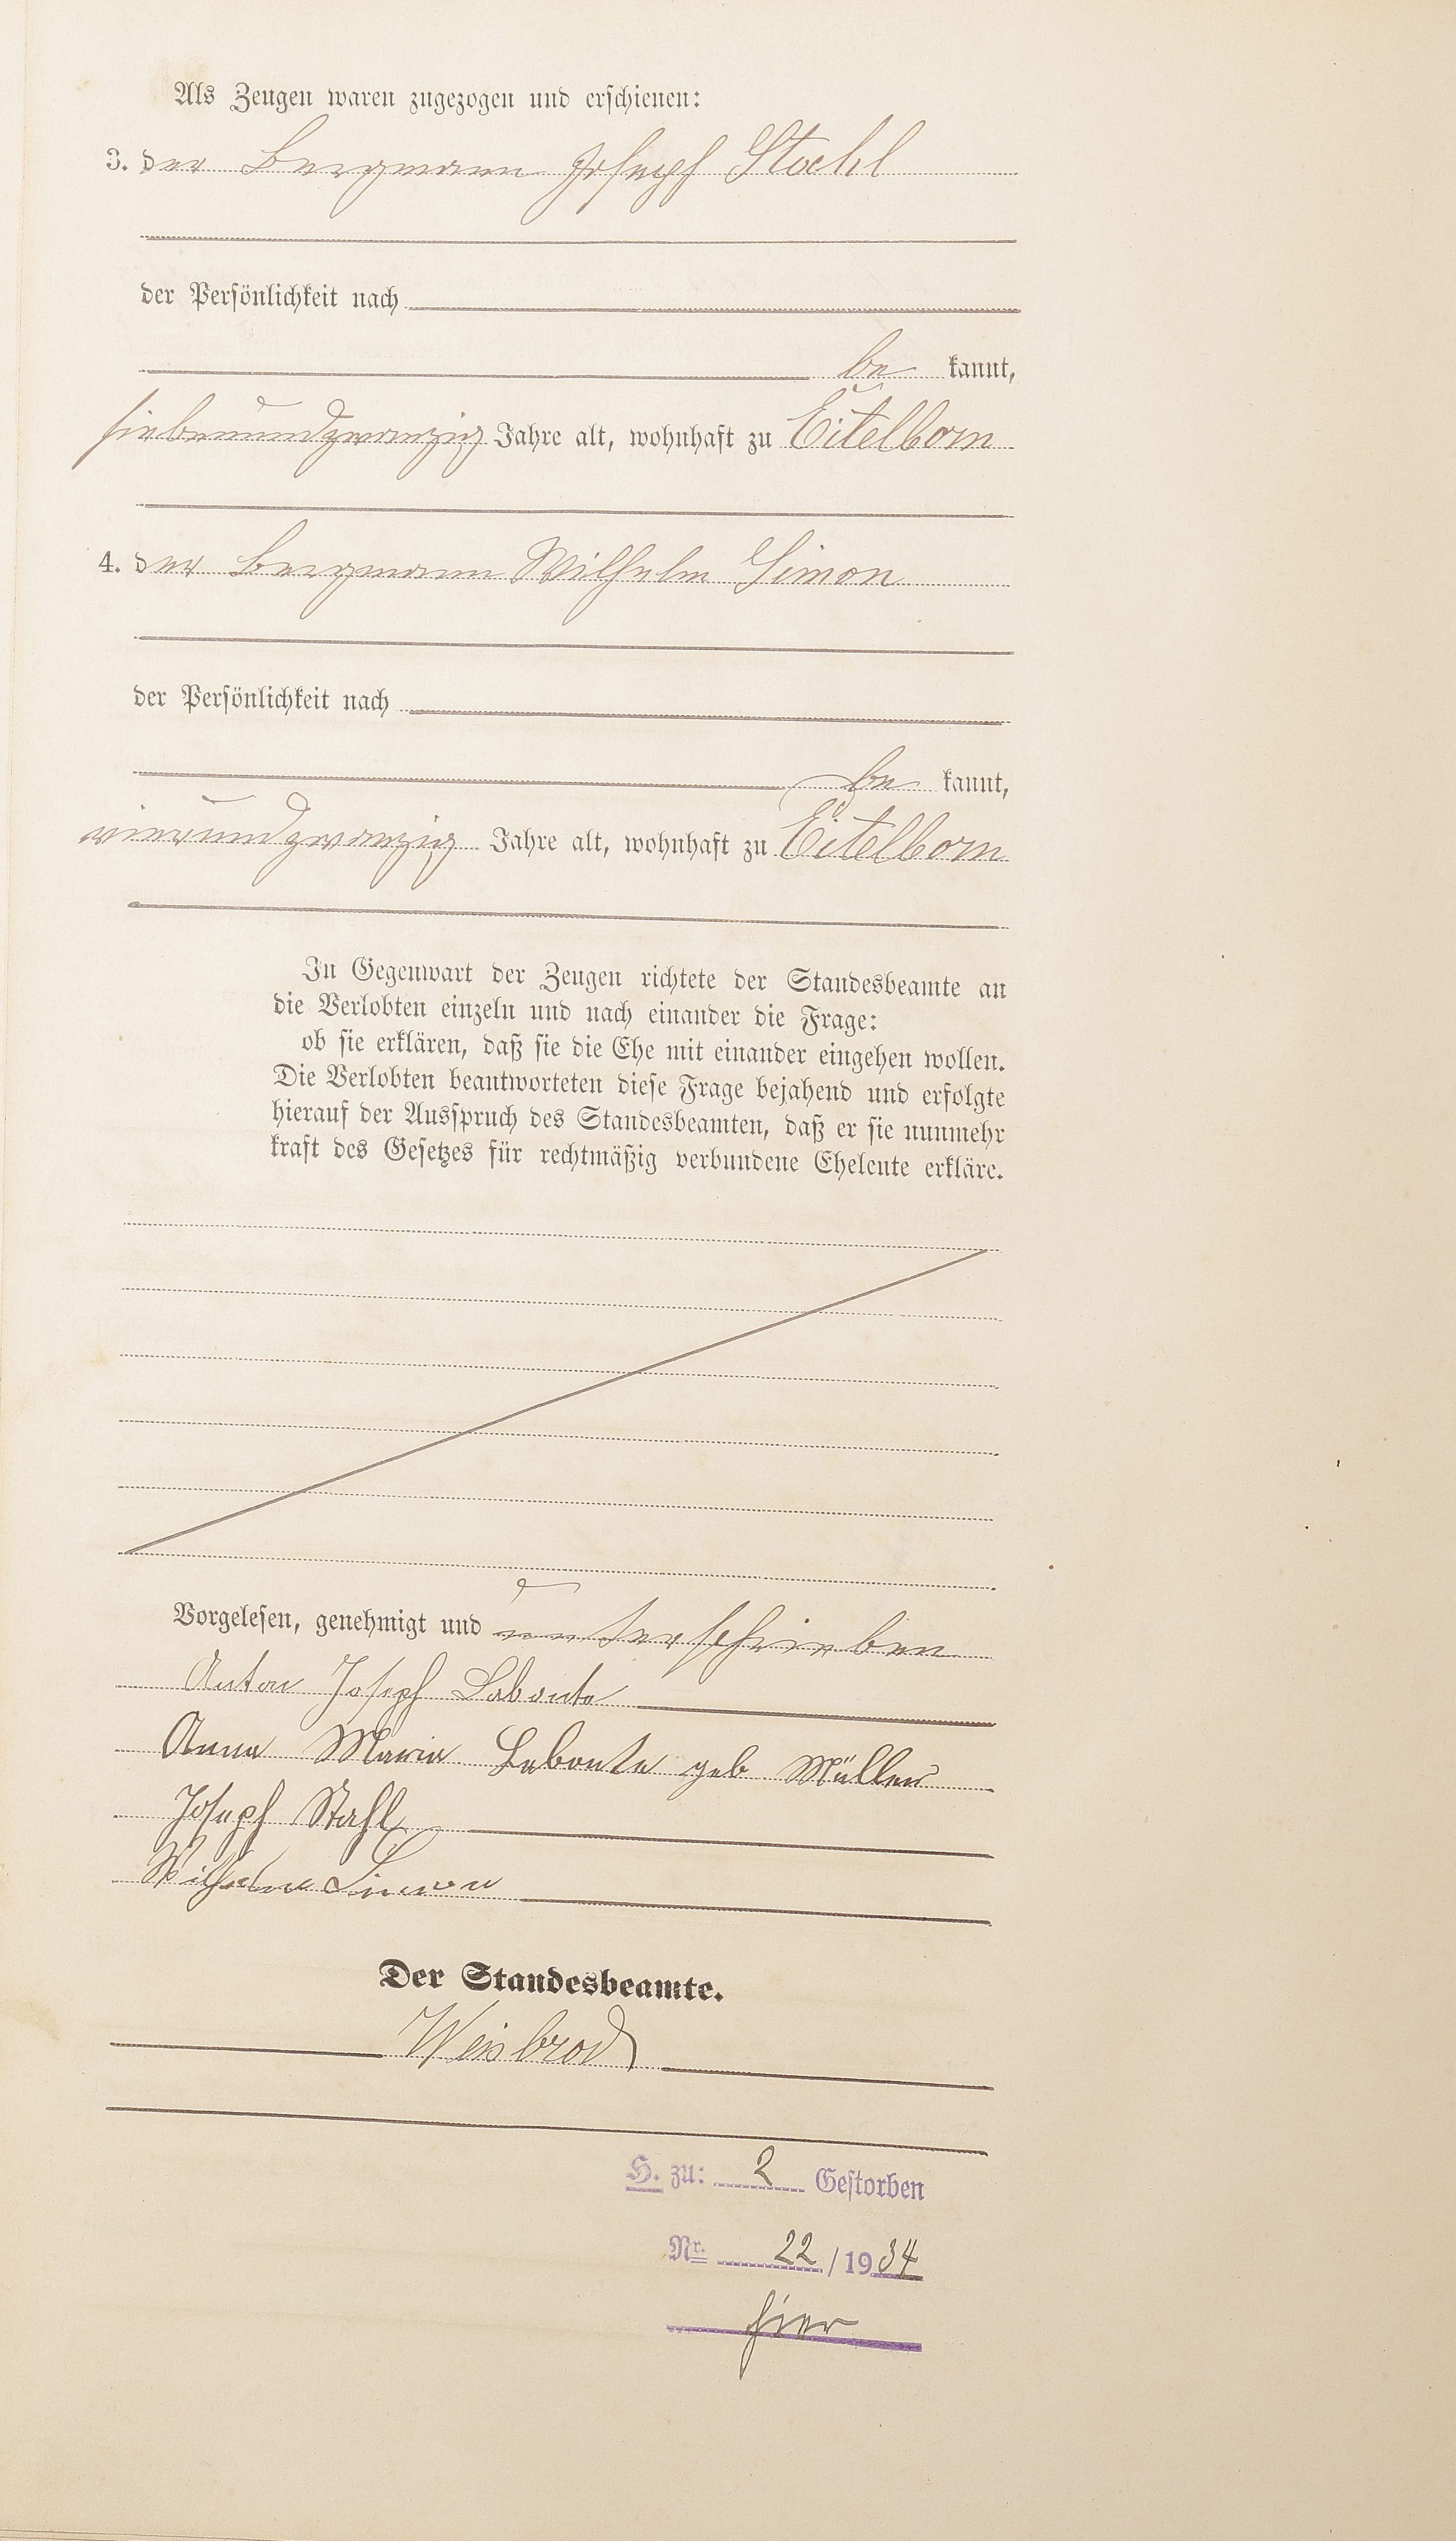 Als Zeugen waren zugezogen und erschienen:
3. der Bergmann Joseph Stahl
der Persönlichkeit nach
be kannt,
siebenundzwanzig Jahre alt, wohnhaft zu Eitelborn
4. der Bergmann Wilhelm Simon
der Persönlichkeit nach
be kannt,
vierundzwanzig Jahre alt, wohnhaft zu Eitelborn
In Gegenwart der Zeugen richtete der Standesbeamte an
die Verlobten einzeln und nach einander die Frage:
ob sie erklären, daß sie die Ehe mit einander eingehen wollen.
Die Verlobten beantworteten diese Frage bejahend und erfolgte
hierauf der Ausspruch des Standesbeamten, daß er sie nunmehr
kraft des Gesetzes für rechtmäßig verbundene Eheleute erkläre.
Vorgelesen, genehmigt und unterschrieben
Anton Joseph Labonte
Anna Maria Labonte geb Müller
Joseph Stahl
Wilhelm Simon
Der Standesbeamte.
Weisbrod
H. zu: 2 Gestorben
Nr. 22 / 1934
hier